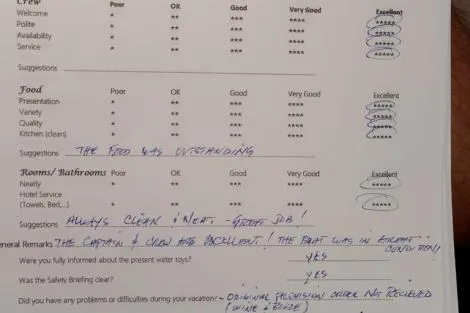 Crew Poor OK Good Very Good Excellent
Welcome * ** *** **** *****
Polite * ** *** **** *****
Availability * ** *** **** *****
Service * ** *** **** *****
Suggestions
Food Poor OK Good Very Good Excellent
Presentation * ** *** **** *****
Variety * ** *** **** *****
Quality * ** *** **** *****
Kitchen (clean) * ** *** **** *****
Suggestions THE FOOD WAS OUTSTANDING
Rooms/ Bathrooms Poor OK Good Very Good Excellent
Neatly * ** *** **** *****
Hotel Service
(Towels, Bed,...) * ** *** **** *****
Suggestions ALWAYS CLEAN & NEAT - GREAT JOB!
General Remarks THE CAPTAIN & CREW ARE EXCELLENT! THE BOAT WAS IN
CONDITION!
Were you fully informed about the present water toys? YES
Was the Safety Briefing clear? YES
Did you have any problems or difficulties during your vacation? - ORIGINAL PROVISION ORDER NOT RECIEVED
(WINE & BOOZE)